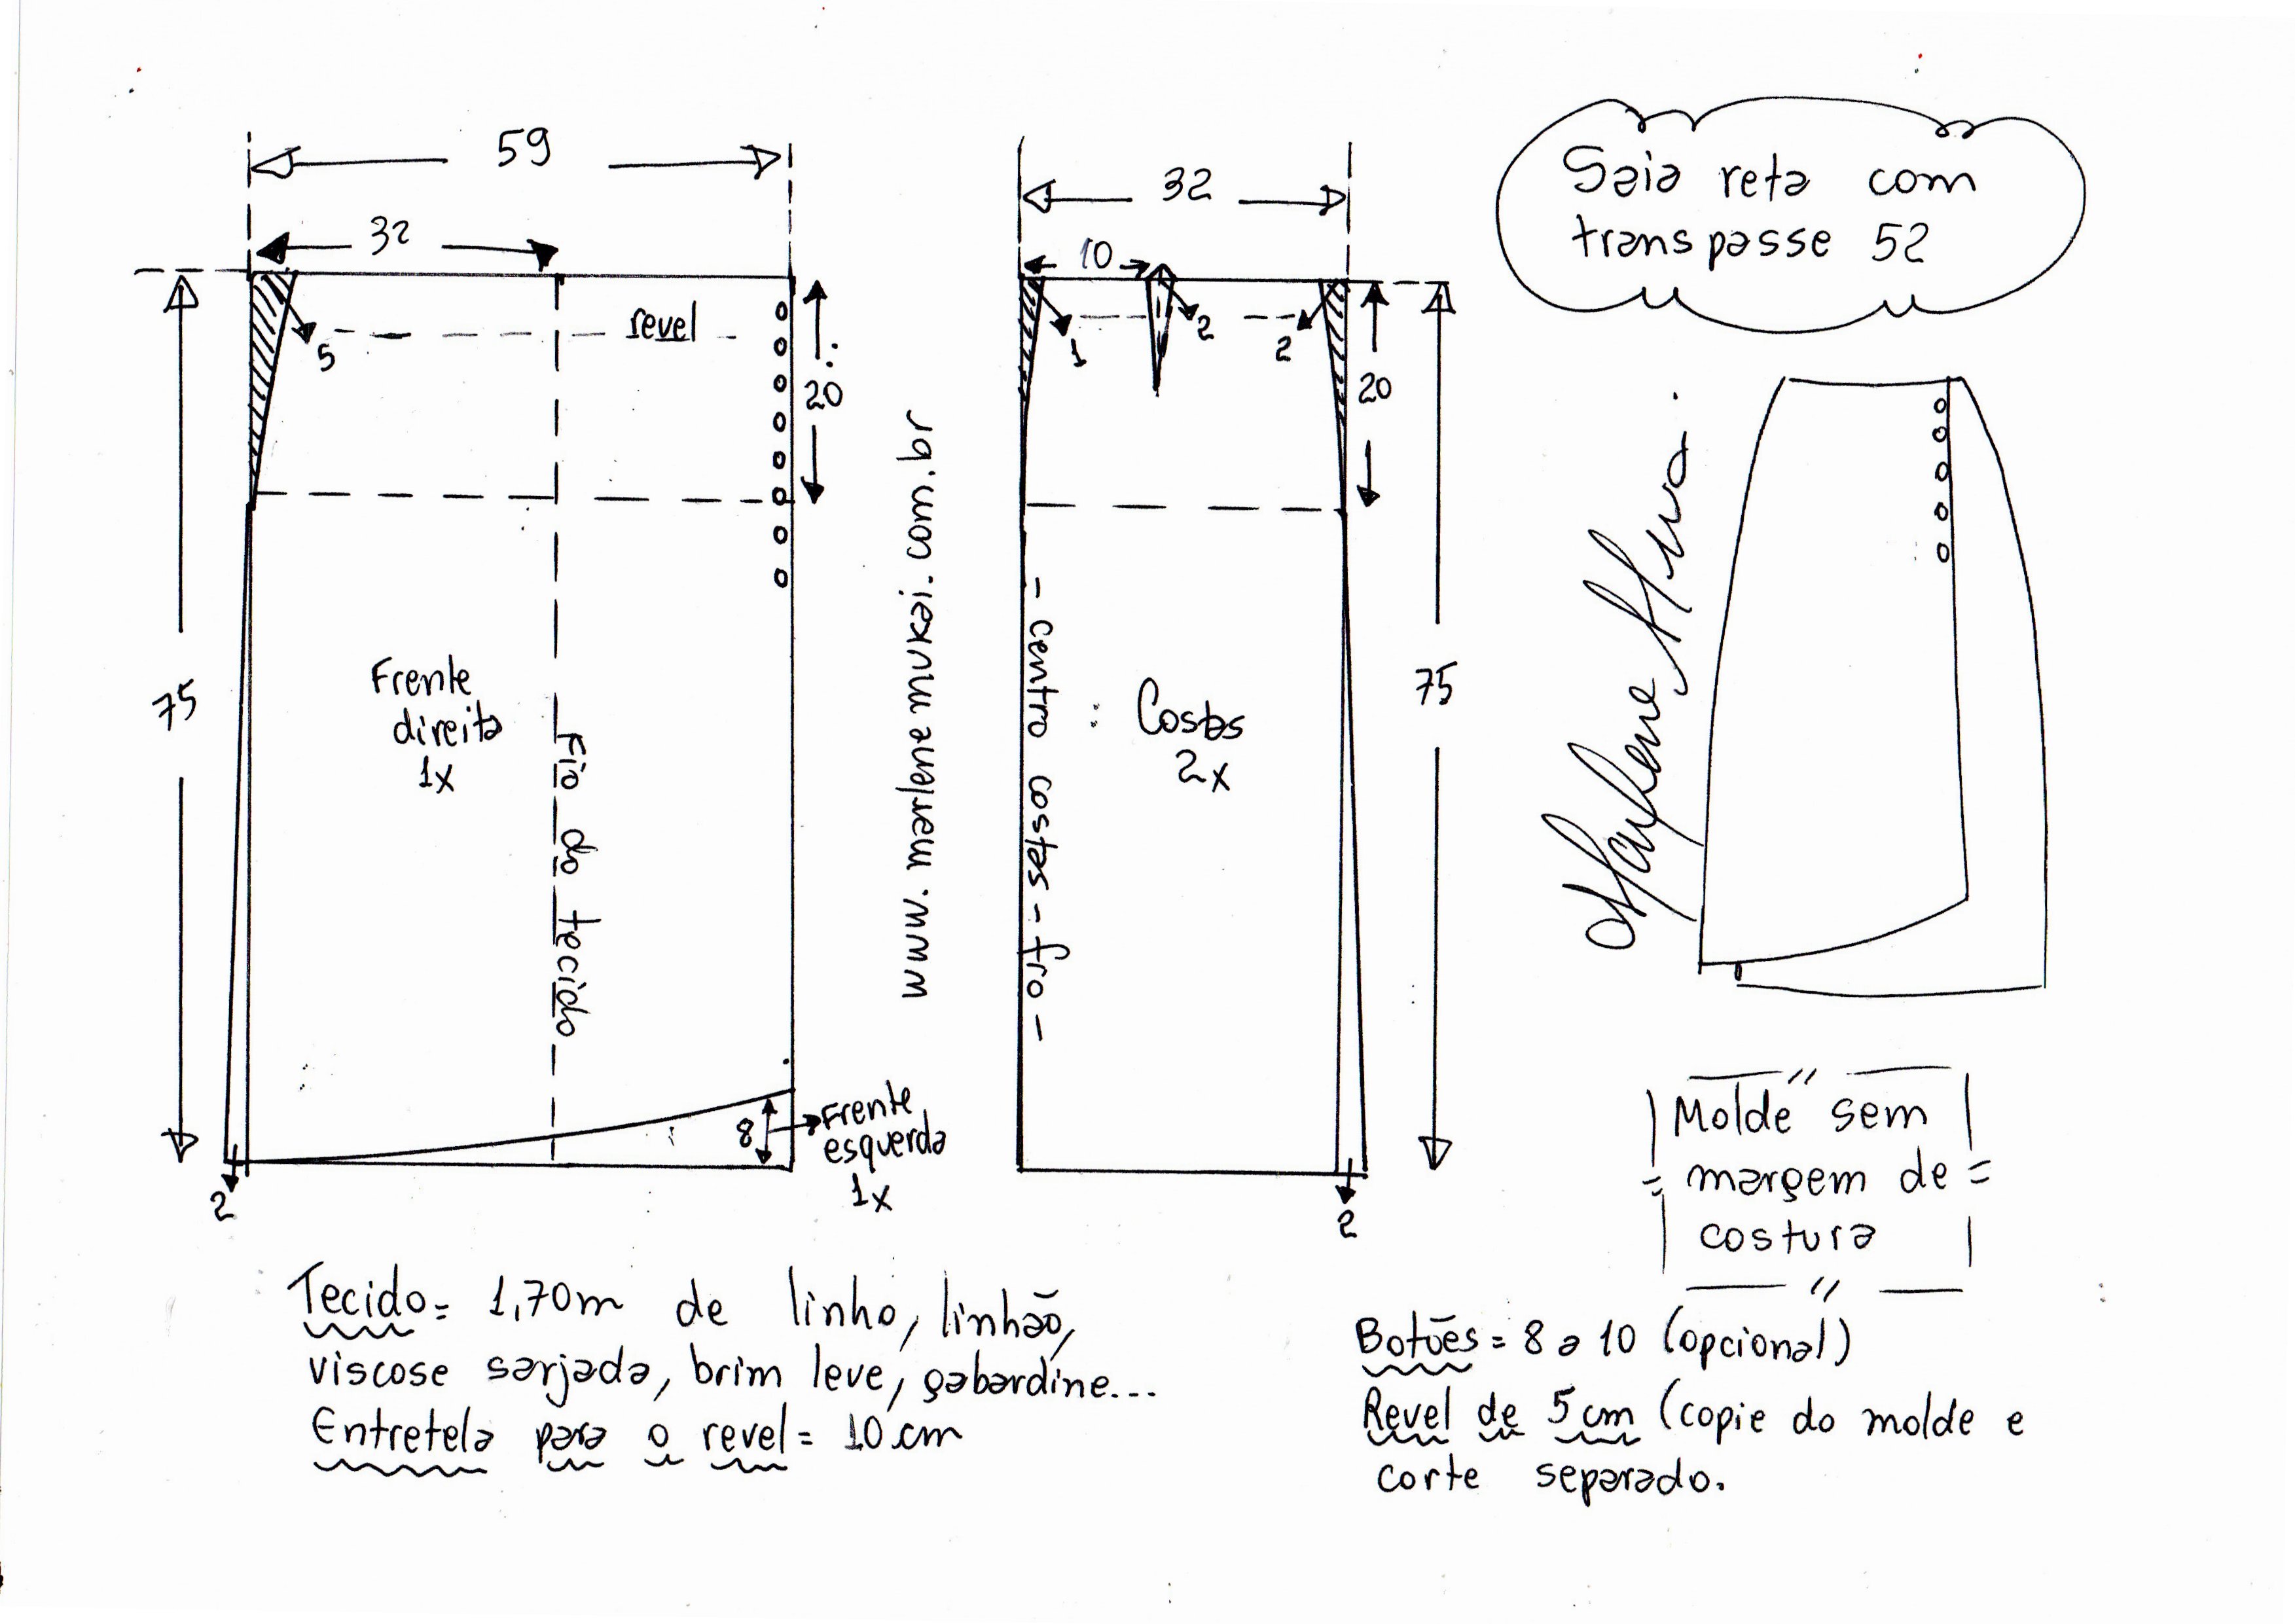 59
32
75
5
revel
20
Frente
direita
1x
Fio do tecido
8
Frente
esquerda
1x
2
www.marlenemukai.com.br
32
10
1
2
2
20
75
- centro costas - fio -
Costas
2x
2
Saia reta com
transpasse 52
Marlene Mukai
Molde sem
margem de
costura
Tecido = 1,70m de linho, linhão,
viscose sarjada, brim leve, gabardine...
Entretela para o revel = 10 cm
Botões = 8 a 10 (opcional)
Revel de 5 cm (copie do molde e
corte separado.